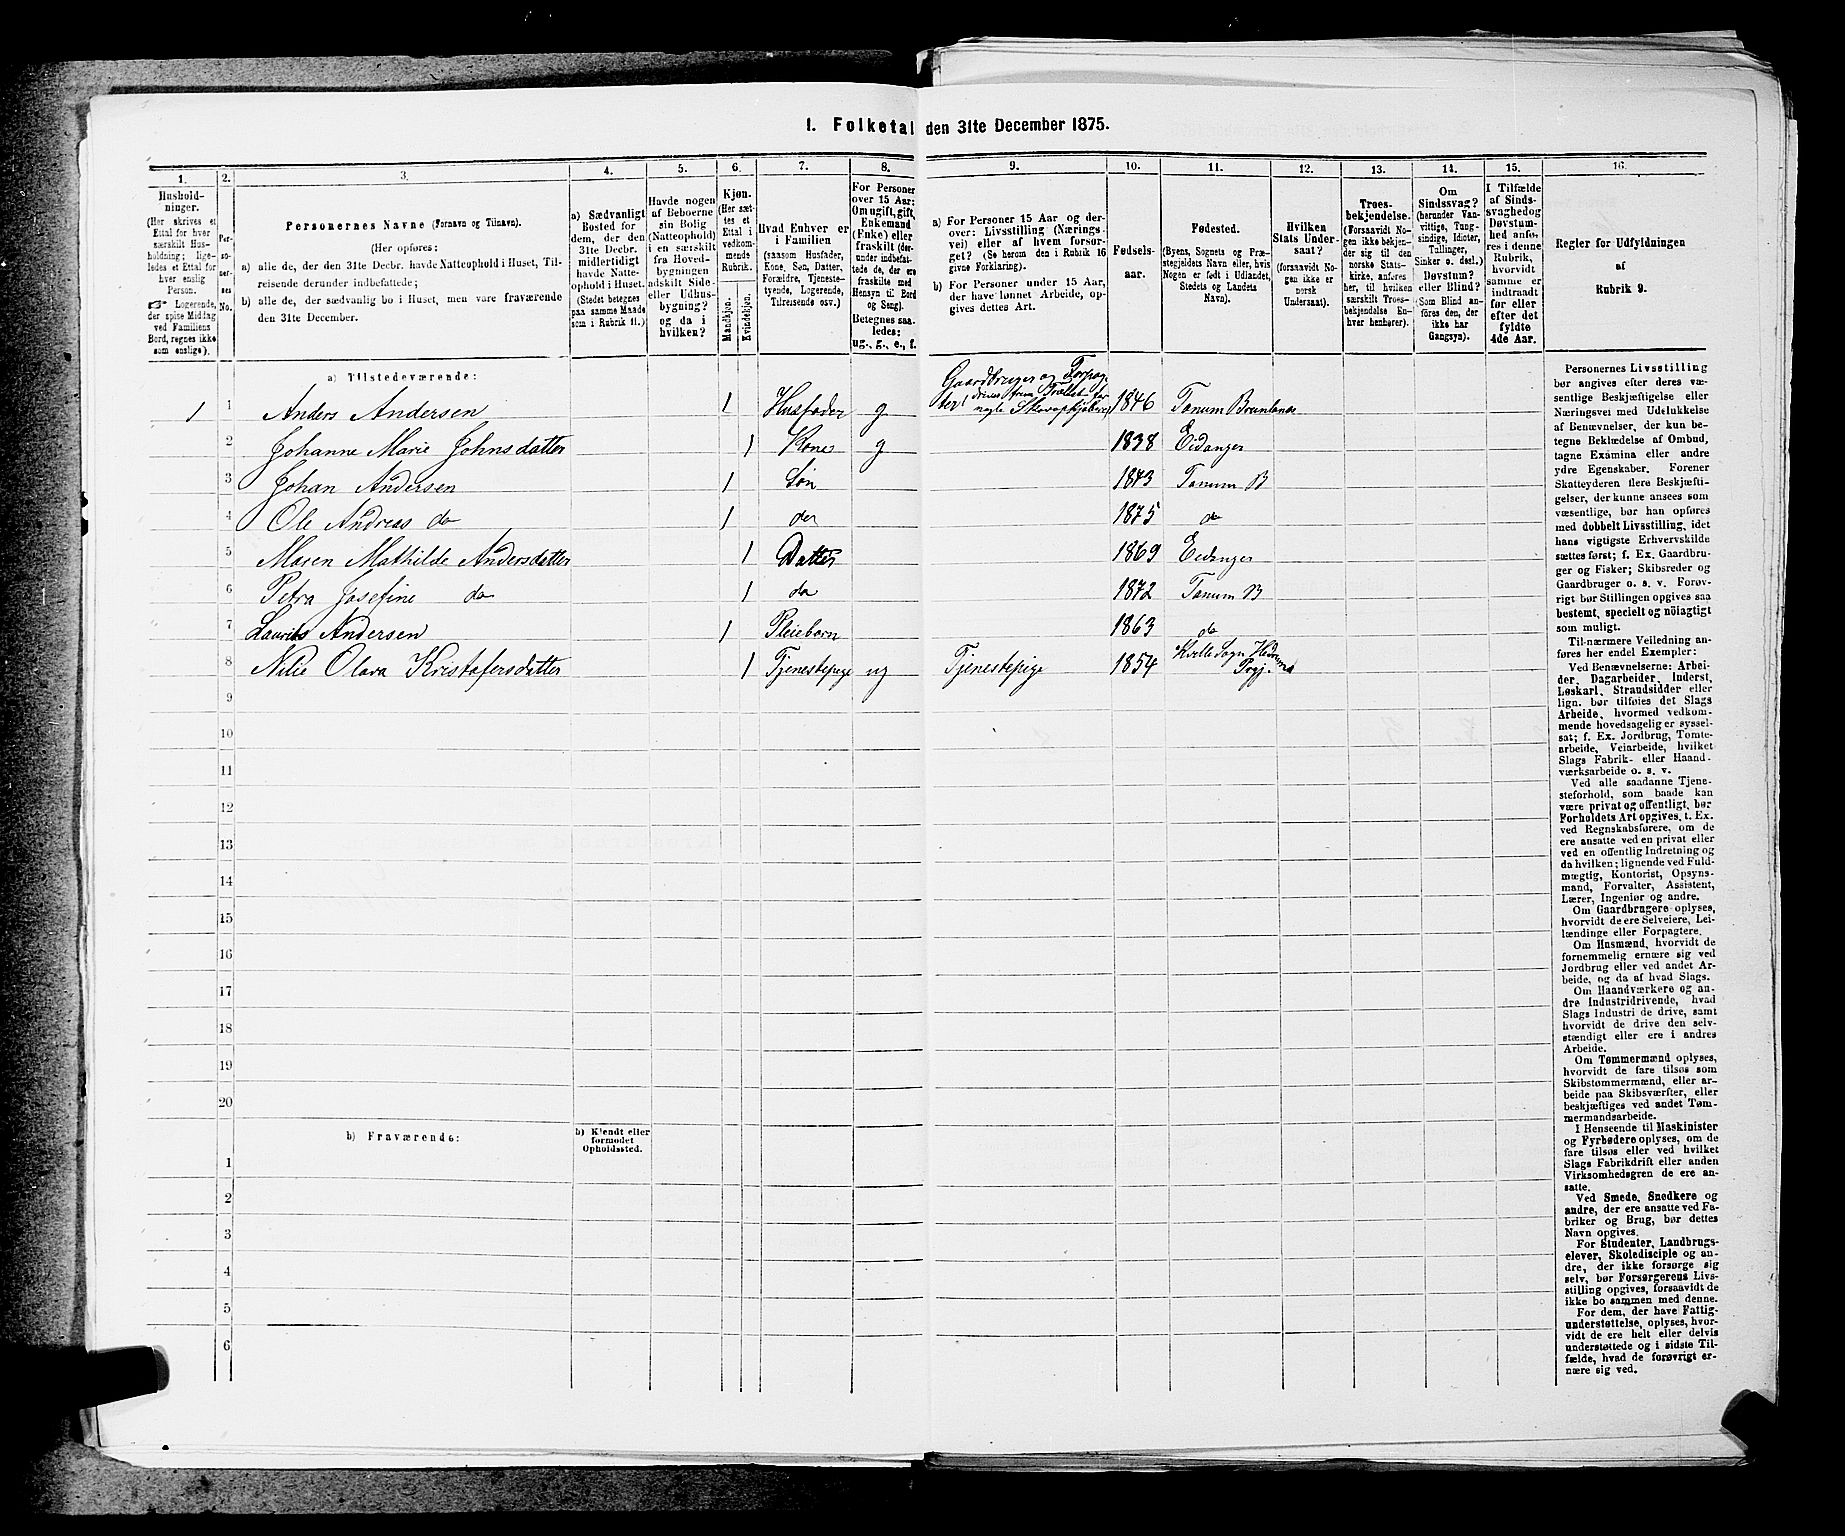 1. Folketal den 31te December 1875.
1.
2.
3.
4.
5.
6.
7.
8.
9.
10.
11.
12.
13.
14.
15.
16.
Hushold-
ninger.
(Her skrives et
Ettal for hver
særskilt Hus-
holdning; lige-
ledes et Ettal for
hver enslig
Person.
☞ Logerende,
der spise Middag
ved Familiens
Bord, regnes ikke
som enslige).
Per-
so-
ner-
nes
No.
Personernes Navne (Fornavn og Tilnavn).
(Her opføres:
a) alle de, der den 31te Decbr. havde Natteophold i Huset, Til-
reisende derunder indbefattede;
b) alle de, der sædvanlig bo i Huset, men vare fraværende
den 31te December.
a) Sædvanligt
Bosted for
dem, der den
31te Decbr.
midlertidigt
havde Natte-
ophold i Huset.
(Stedet betegnes
paa samme Maade
som i Rubrik 11.)
Havde nogen
af Beboerne
sin Bolig
(Natteophold)
i en særskilt
fra Hoved-
bygningen
adskilt Side-
eller Udhus-
bygning?
og da i
hvilken?
Kjøn.
(Her sæt-
tes et
Ettal i
vedkom-
mende
Rubrik.
Mandkjøn.
Kvindekjøn.
Hvad Enhver er
i Familien
(saasom Husfader,
Kone, Søn, Datter,
Forældre, Tjeneste-
tyende, Logerende,
Tilreisende osv.)
For Personer
over 15 Aar:
Om ugift, gift,
Enkemand
(Enke) eller
fraskilt (der-
under indbefat-
tede de, der ere
fraskilte med
Hensyn til Bord
og Seng).
Betegnes saa-
ledes:
ug., g., e., f.
a) For Personer 15 Aar og der-
over: Livsstilling (Nærings-
vei) eller af hvem forsør-
get? (Se herom den i Rubrik 16
givne Forklaring).
b) For Personer under 15 Aar,
der have lønnet Arbeide, op-
gives dettes Art.
Fødsels-
aar.
Fødested.
(Byens, Sognets og Præ-
stegjeldets Navn eller, hvis
Nogen er født i Udlandet,
Stedets og Landets
Navn).
Hvilken
Stats Under-
saat?
(forsaavidt No-
gen ikke er
norsk
Undersaat).
Troes-
bekjendelse.
(Forsaavidt No-
gen ikke bekjen-
der sig til den
norske Stats-
kirke, anføres
her, til hvilken
særskilt Troes-
bekjendelse En-
hver henhører).
Om
Sindssvag?
(herunder Van-
vittige, Tung-
sindige, Idioter,
Tullinger,
Sinker o. desl.)
Døvstum?
eller Blind?
(Som Blind an-
føres den, der
ikke har
Gangsyn).
I Tilfælde
af Sinds-
svaghed og
Døvstum-
hed anfø-
res i denne
Rubrik,
hvorvidt
samme er
indtraadt
før eller
efter det
fyldte
4de Aar.
Regler for Udfyldningen
af
Rubrik 9.
a) Tilstedeværende:
1 1 Anders Andersen 1 Husfader g Gaardbruger og Forpag- 1846 Tanum Brunlanes
2 Johanne Marie Johnsdatter 1 Kone g 1838 Eidanger
3 Johan Andersen 1 Søn 1873 Tanum B
4 Ole Andreas do 1 do 1875 do
5 Maren Mathilde Andersdatter 1 Datter 1869 Eidanger
6 Petra Josefine do 1 do 1872 Tanum B
7 Laurits Andersen 1 Pleiebarn 1863 do
8 Olava Kristofersdatter 1 Tjenestepige ug Tjenestepige 1854 Kvelle Sogn Hedrums Prgj.
9
10
11
12
13
14
15
16
17
18
19
20
b) Fraværende:
b) Kjendt eller
formodet
Opholdssted.
1
2
3
4
5
6
Personernes Livsstilling
bør angives efter deres væ-
sentlige Beskjæftigelse eller
Næringsvei med Udelukkelse
af Benævnelser, der kun be-
tegne Beklædelse af Ombud,
tagne Examina eller andre
ydre Egenskaber. Forener
Skatteyderen flere Beskjæfti-
gelser, der kunne ansees som
væsentlige, bør han opføres
med dobbelt Livsstilling, idet
hans vigtigste Erhvervskilde
sættes først; f. Ex. Gaardbru-
ger og Fisker; Skibsreder og
Gaardbruger o. s. v. Forøv-
rigt bør Stillingen opgives saa
bestemt, specielt og nöiagtigt
som muligt.
Til nærmere Veiledning an-
føres her endel Exempler:
Ved Benævnelserne: Arbei-
der, Dagarbeider, Inderst,
Løskarl, Strandsidder eller
lign. bør tilføies det Slags
Arbeide, hvormed vedkom-
mende hovedsagelig er syssel-
sat; f. Ex. Jordbrug, Tomte-
arbeide, Veiarbeide, hvilket
Slags Fabrik- eller Haand-
værksarbeide o. s. v.
Ved alle saadanne Tjene-
steforhold, som baade kan
være privat og offentligt, bør
Forholdets Art opgives, t. Ex.
ved Regnskabsførere, om de
ere ansatte ved en privat eller
ved en offentlig Indretning og
da hvilken; lignende ved Fuld-
mægtig, Kontorist, Opsyns-
mand, Forvalter, Assistent,
Lærer, Ingeniør og andre.
Om Gaardbrugere oplyses,
hvorvidt de ere Selveiere, Lei-
lændinge eller Forpagtere.
Om Husmænd, hvorvidt de
fornemmelig ernære sig ved
Jordbrug eller ved andet Ar-
beide, og da af hvad Slags.
Om Haandværkere og an-
dre Industridrivende, hvad
Slags Industri de drive, samt
hvorvidt de drive den selv-
stændigt eller ere i andres
Arbeide.
Om Tømmermænd oplyses,
hvorvidt de fare tilsøs som
Skibstømmermænd, eller ar-
beide paa Skibsværfter, eller
beskjæftiges ved andet Tøm-
mermandsarbeide.
I Henseende til Maskinister
og Fyrbødere oplyses, om de
fare tilsøs eller ved hvilket
Slags Fabrikdrift eller anden
Virksomhedsgren de ere an-
satte.
Ved Smede, Snedkere og
andre, der ere ansatte ved Fa-
briker og Brug, bør dettes
Navn opgives.
For Studenter, Landbrugs-
elever, Skoledisciple og an-
dre, der ikke forsørge sig
selv, bør Forsørgerens Livs-
stilling opgives, forsaavidt de
ikke bo sammen med denne.
For dem, der have Fattig-
understøttelse, oplyses, hvor-
vidt de ere helt eller delvis
understøttede og i sidste Til-
fælde, hvad de forøvrigt er-
nære sig ved.